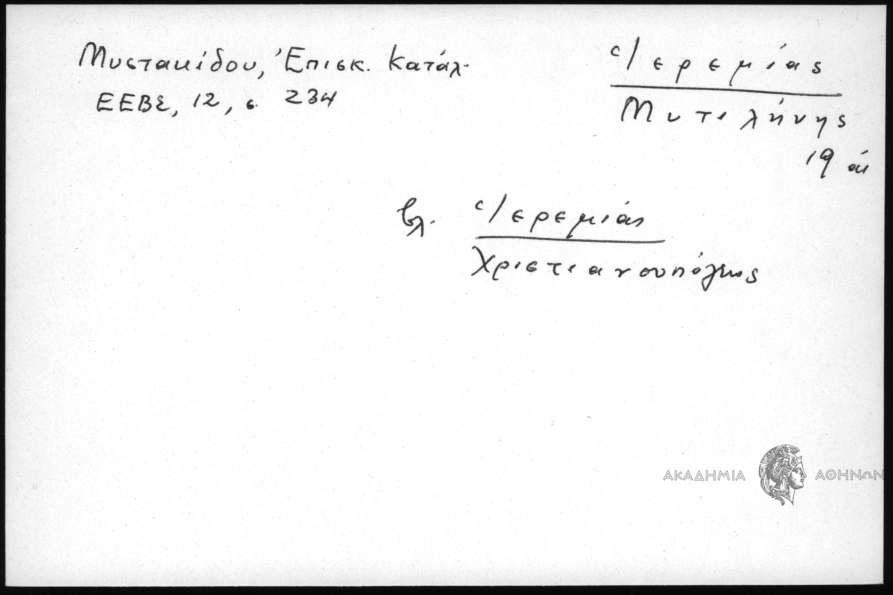 Μυστακίδου, Ἐπισκ. Κατάλ.
ΕΕΒΣ, 12, σ. 234
Ἱερεμίας
Μυτιλήνης
19 αι
βλ. Ἱερεμίας
Χριστιανουπόλεως
ΑΚΑΔΗΜΙΑ ΑΘΗΝΩΝ